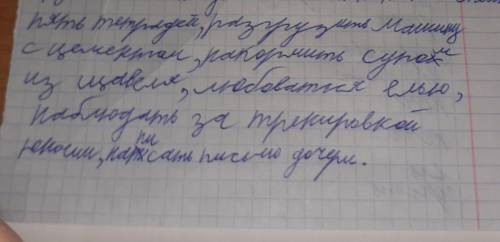 пять тетрадей, разгрузить машину
с цементом, накормить супом
из щавеля, любоваться елью,
наблюдать за тренировкой
юноши, написать письмо дочери.